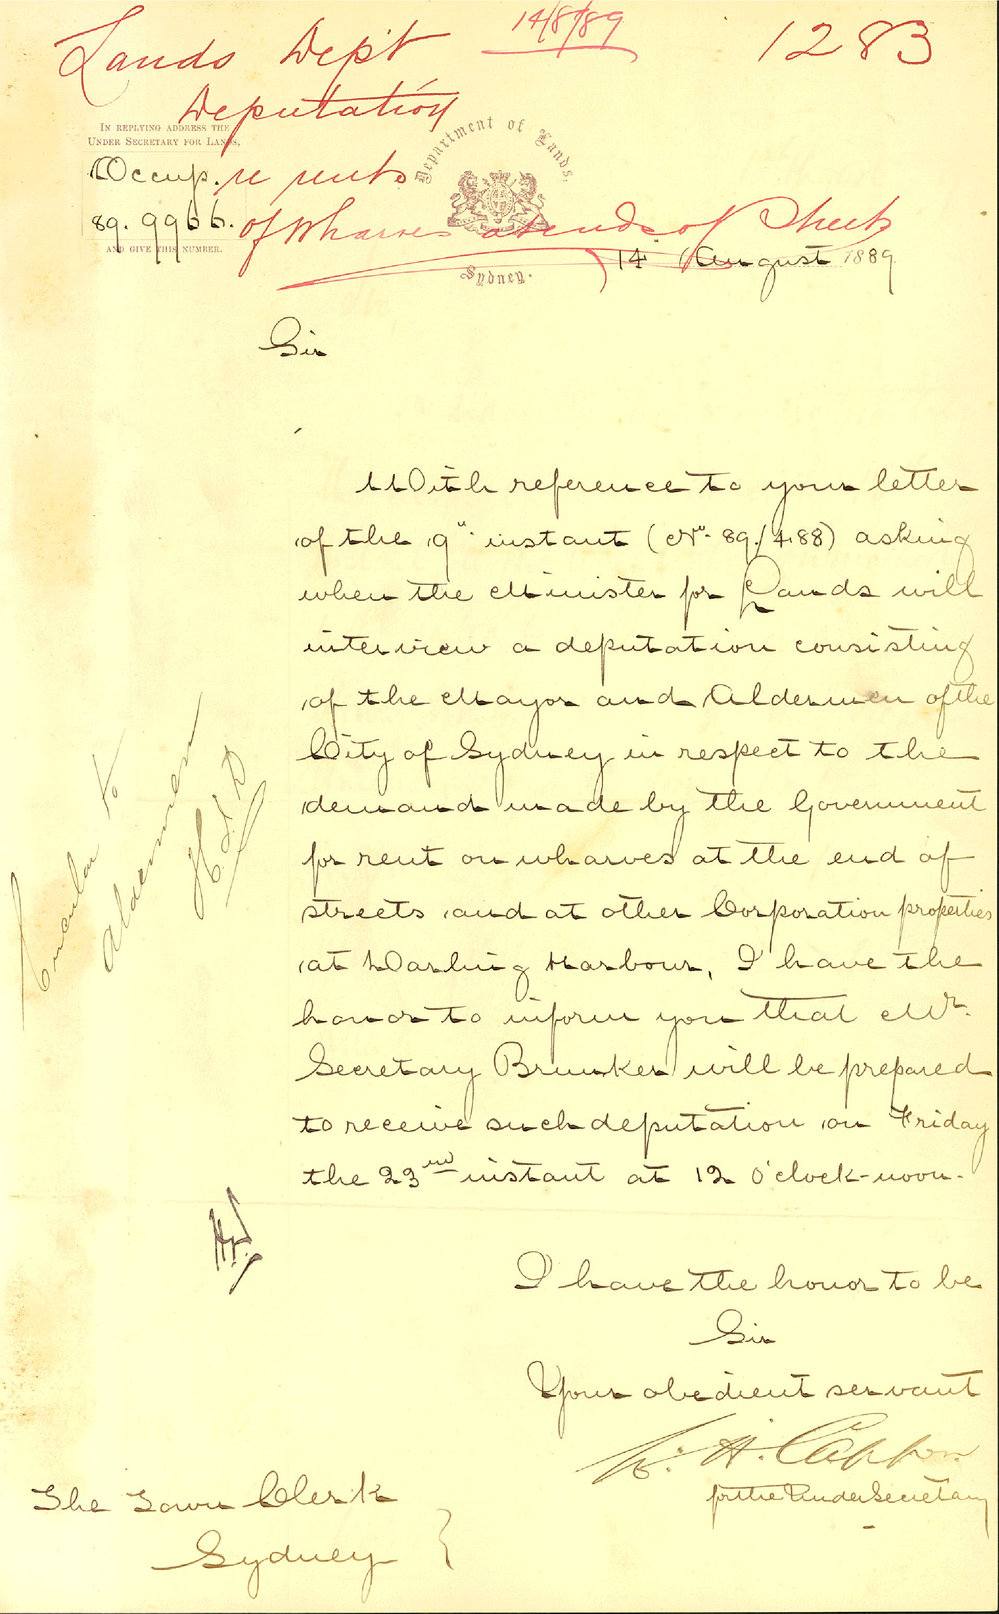 14/8/89
1283
Lands Dept
Deputation
In replying address the
Under Secretary for Lands,
Occup. re rents
89. 9966. of Wharves at ends of Streets
and give this number.
Department of Lands.
Sydney.
14 August 1889
Sir
With reference to your letter
of the 9th instant (No. 89/488) asking
when the Minister for Lands will
interview a deputation consisting
of the Mayor and Aldermen of the
City of Sydney in respect to the
demand made by the Government
for rent on wharves at the end of
streets and at other Corporation properties
at Darling Harbour, I have the
honor to inform you that Mr.
Secretary Brunker will be prepared
to receive such deputation on Friday
the 23rd instant at 12 o'clock-noon.
Circular to
Aldermen
I have the honor to be
Sir
Your obedient servant
W. H. Capper
for the Under Secretary
The Town Clerk
Sydney